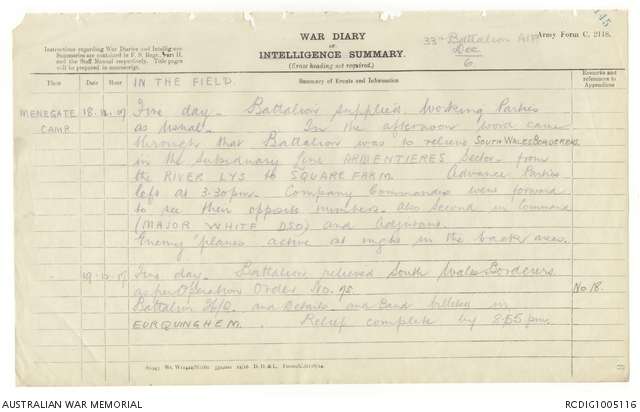 WAR DIARY
OR
INTELLIGENCE SUMMARY.
(Erase heading not required.)
Instructions regarding War Diaries and Intelligence
Summaries are contained in F. S. Regs., Part II.
and the Staff Manual respectively. Title pages
will be prepared in manuscript.
33rd Battalion AIF
Dec
6.
145
Army Form C. 2118.
Place
Date
Hour
IN THE FIELD.
Summary of Events and Information
Remarks and
references to
Appendices
MENEGATE
CAMP.
18.12.17
Fine day. Battalion supplied Working Parties
as usual. In the afternoon word came
through that Battalion was to relieve SOUTH WALES BORDERERS
in the subsidiary line ARMENTIERES Sector from
the RIVER LYS to SQUARE FARM. Advance Parties
left at 3.30 pm. Company Commanders went forward
to see their opposite numbers. also Second in Command
(MAJOR WHITE DSO) and Adjutant.
Enemy 'planes active at night in the back areas.
19.12.17
Fine day. Battalion relieved South Wales Borderers
as per Operation Order No. 75.
Battalion H/Q. and Details and Band billeted in
EORQUINGHEM. Relief complete by 8.55 pm.
No 18.
AUSTRALIAN WAR MEMORIAL
RCDIG1005116